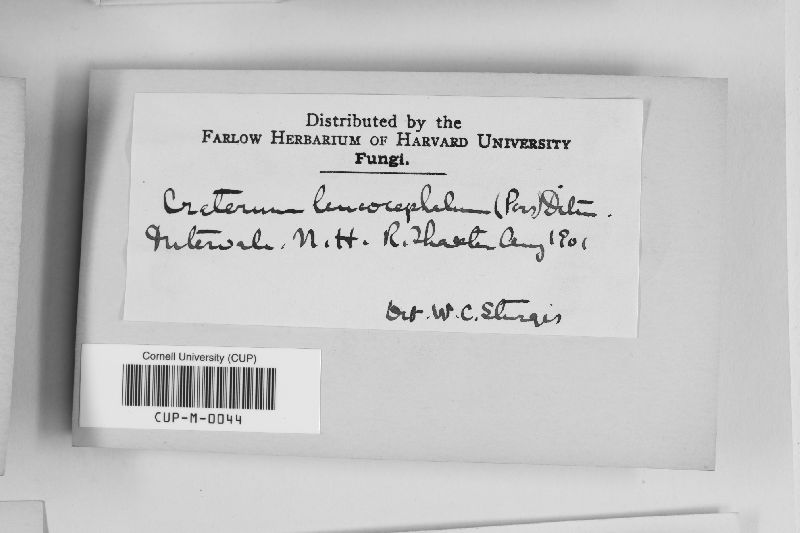 Distributed by the
FARLOW HERBARIUM OF HARVARD UNIVERSITY
Fungi.
Craterium leucocephalum (Pers) Ditm.
Intervale. N.H. R. Thaxter Aug 1901
Det. W. C. Sturgis
Cornell University (CUP)
CUP-M-0044